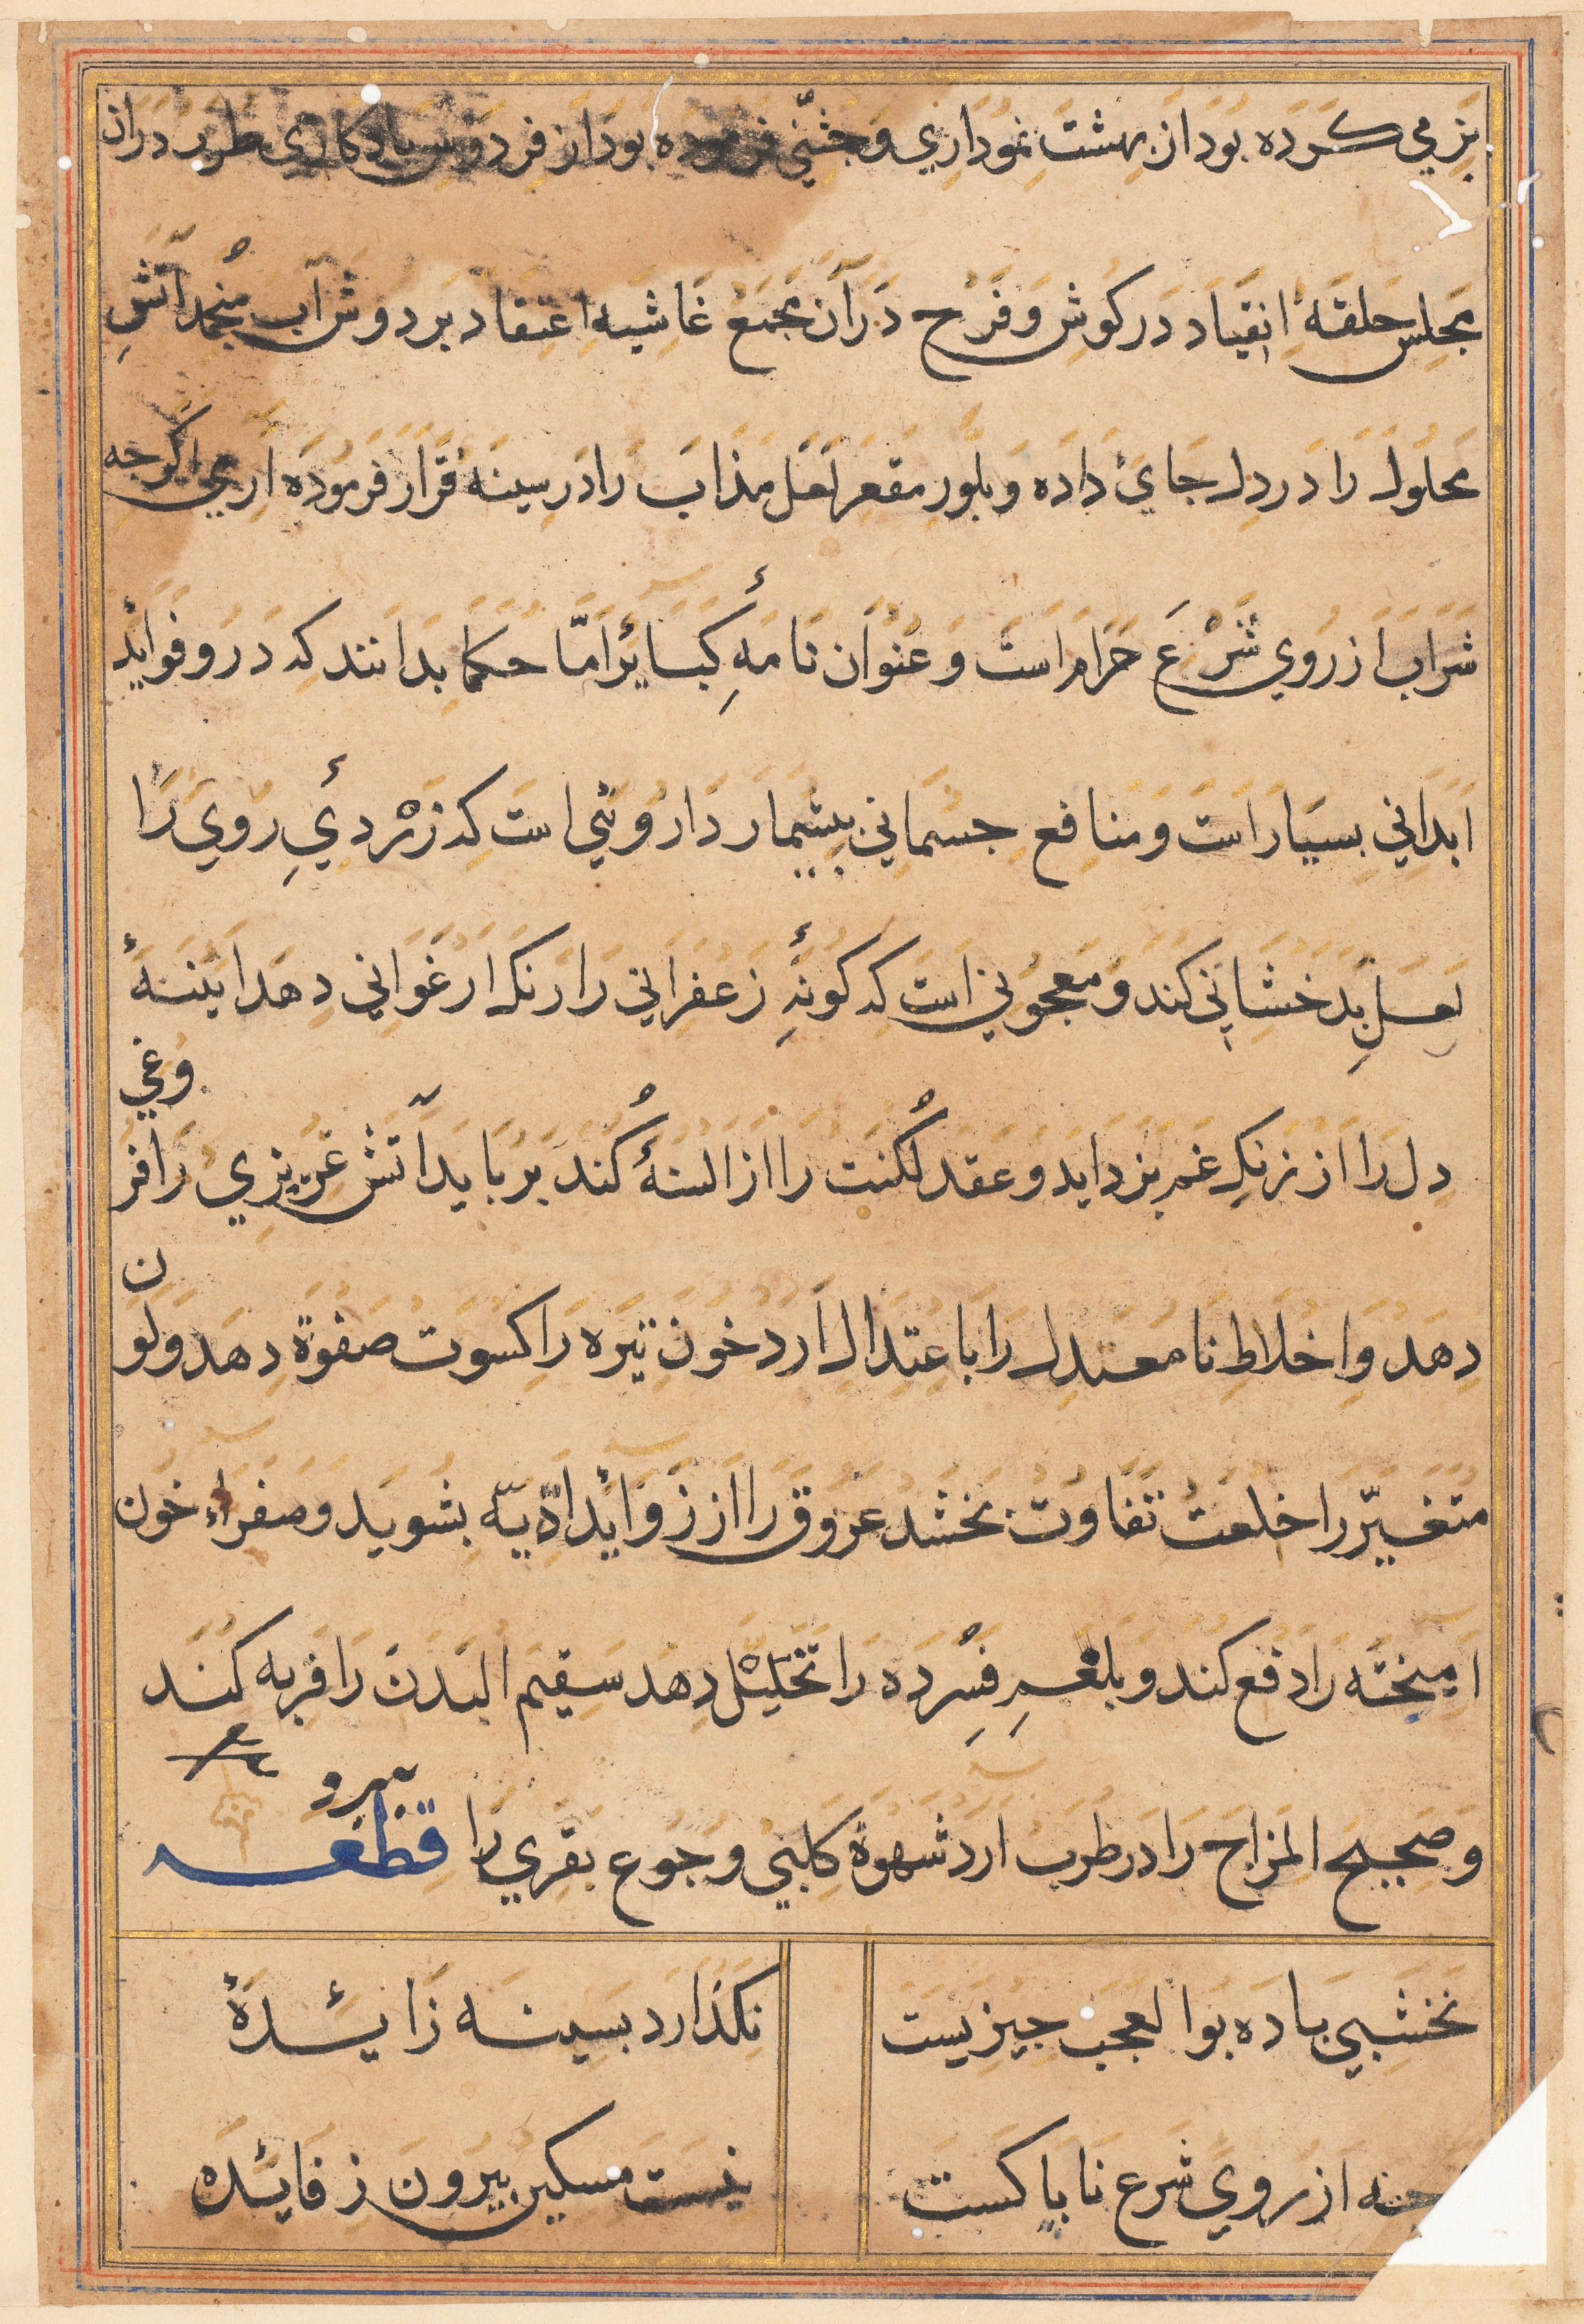 بزمي کرده بود از بهشت نموداري و جشني فرموده بود از فردوس يادکاري طرب دران
مجلس حلقهٔ انقياد در کوش و فرح در آن مجمع غاشيهٔ اعتقاد بر دوش آب منجمد آتش
محلول را در دل جاي داده و بلور مقعر لعل مذاب را در سينه قرار فرموده اري اکرجه
شراب از روي شرع حرام است و عنوان نامهٔ کبائر امّا حکما بدانند که درو فوايد
ابداني بسيار است و منافع جسماني بيشمار داروئي است که زردئ روي را
لعل بدخشاني کند و معجوني است که کونهٔ زعفراني را رنک ارغواني دهد اينهٔ
دل را از زنک غم بزدايد و عقد لکنت را از السنهٔ کند بربايد آتش غريزي را فر
وغي
دهد و اخلاط نامعتدل را باعتدال ارد خون تيره را کسوت صفوة دهد و لو
ن
متغيّر را خلعت تفاوت بخشد عروق را از زوائد اديّه بشويد و صفراء خون
اميخته را دفع کند و بلغم فسرده را تحليل دهد سقيم البدن را فربه کند
و صحيح المزاج را در طرب ارد شهوة کلبي و جوع بقري را
قطعه
نخشبي باده بوالعجب جيزيست
نکذارد بسينه زائدهٔ
جه از روي شرع ناباکست
نيست مسکين بيرون ز فائده